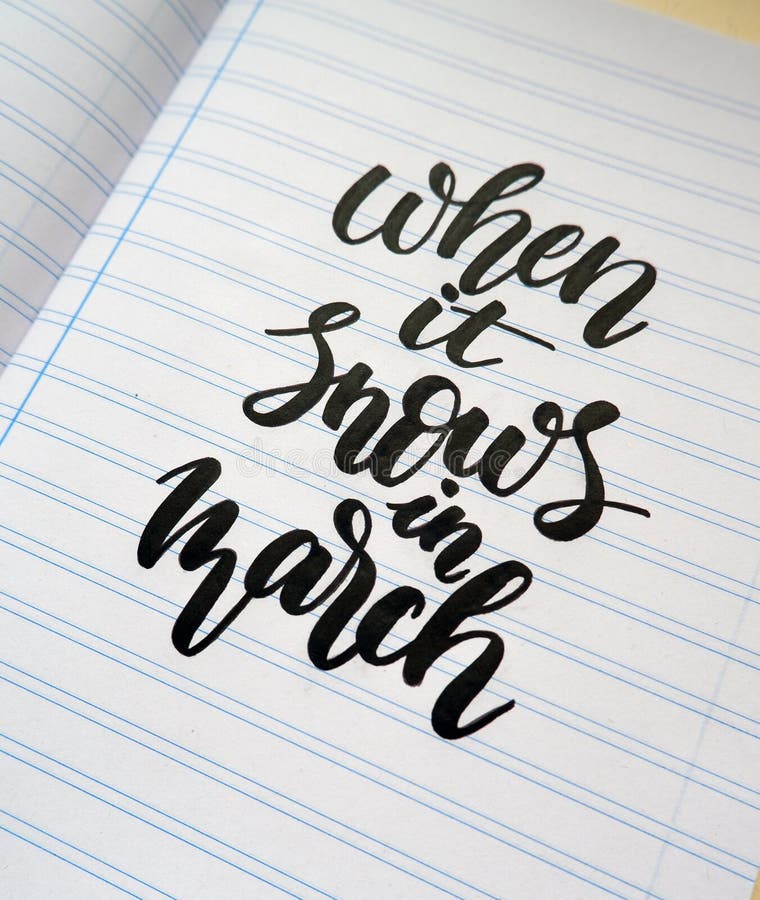 when
it
snows
in
march
dreamstime